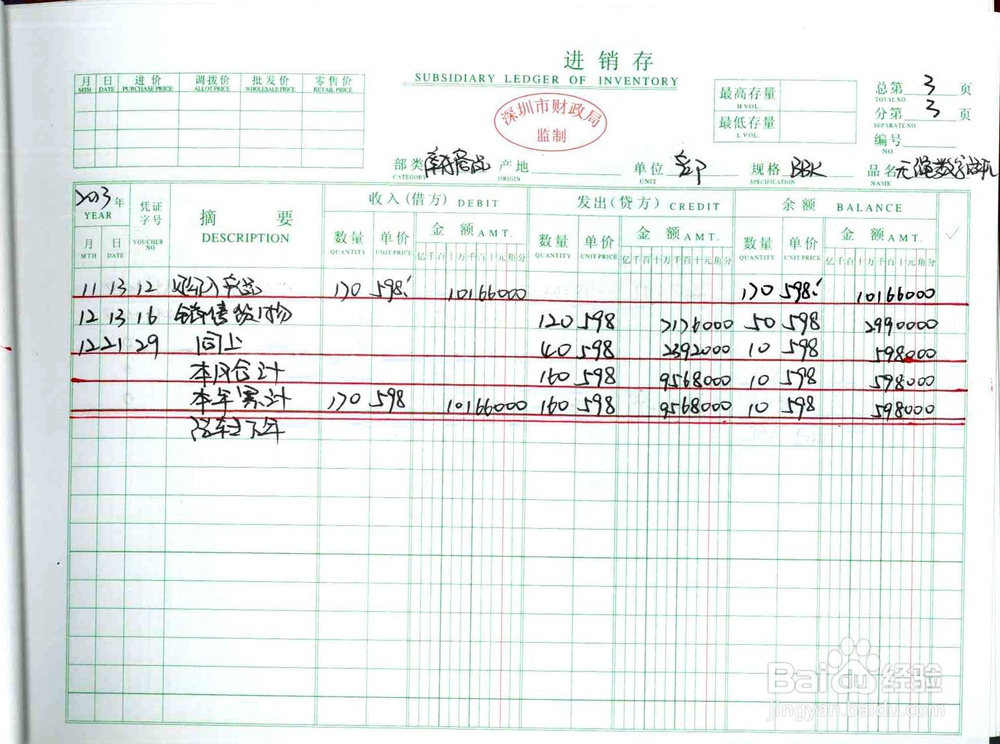 进销存
SUBSIDIARY LEDGER OF INVENTORY
月 日 进价 调拨价 批发价 零售价
MTH DATE PURCHASE PRICE ALLOT PRICE WHOLESALE PRICE RETAIL PRICE
深圳市财政局
监制
最高存量
H VOL.
最低存量
L VOL.
总第 3 页
TOTAL NO.
分第 3 页
SEPARATE NO
编号
NO.
部类 库存商品 产地 单位 规格 BBK 品名
CATEGORY ORIGIN UNIT SPECIFICATION NAME
2003年 凭证字号 摘要 收入(借方) DEBIT 发出(贷方) CREDIT 余额 BALANCE
YEAR VOUCHER NO DESCRIPTION
月 日 数量 单价 金额 AMT. 数量 单价 金额 AMT. 数量 单价 金额 AMT.
MTH DATE QUANTITY UNIT PRICE QUANTITY UNIT PRICE QUANTITY UNIT PRICE
亿千百十万千百十元角分 亿千百十万千百十元角分 亿千百十万千百十元角分
11 13 12 170 598 10166000 170 598 10166000
12 13 16 销售 120 598 7176000 50 598 2990000
12 21 29 同上 40 598 2392000 10 598 598000
本月合计 160 598 9568000 10 598 598000
本年累计 170 598 10166000 160 598 9568000 10 598 598000
结转下年
Baidu经验
jingyan.baidu.com